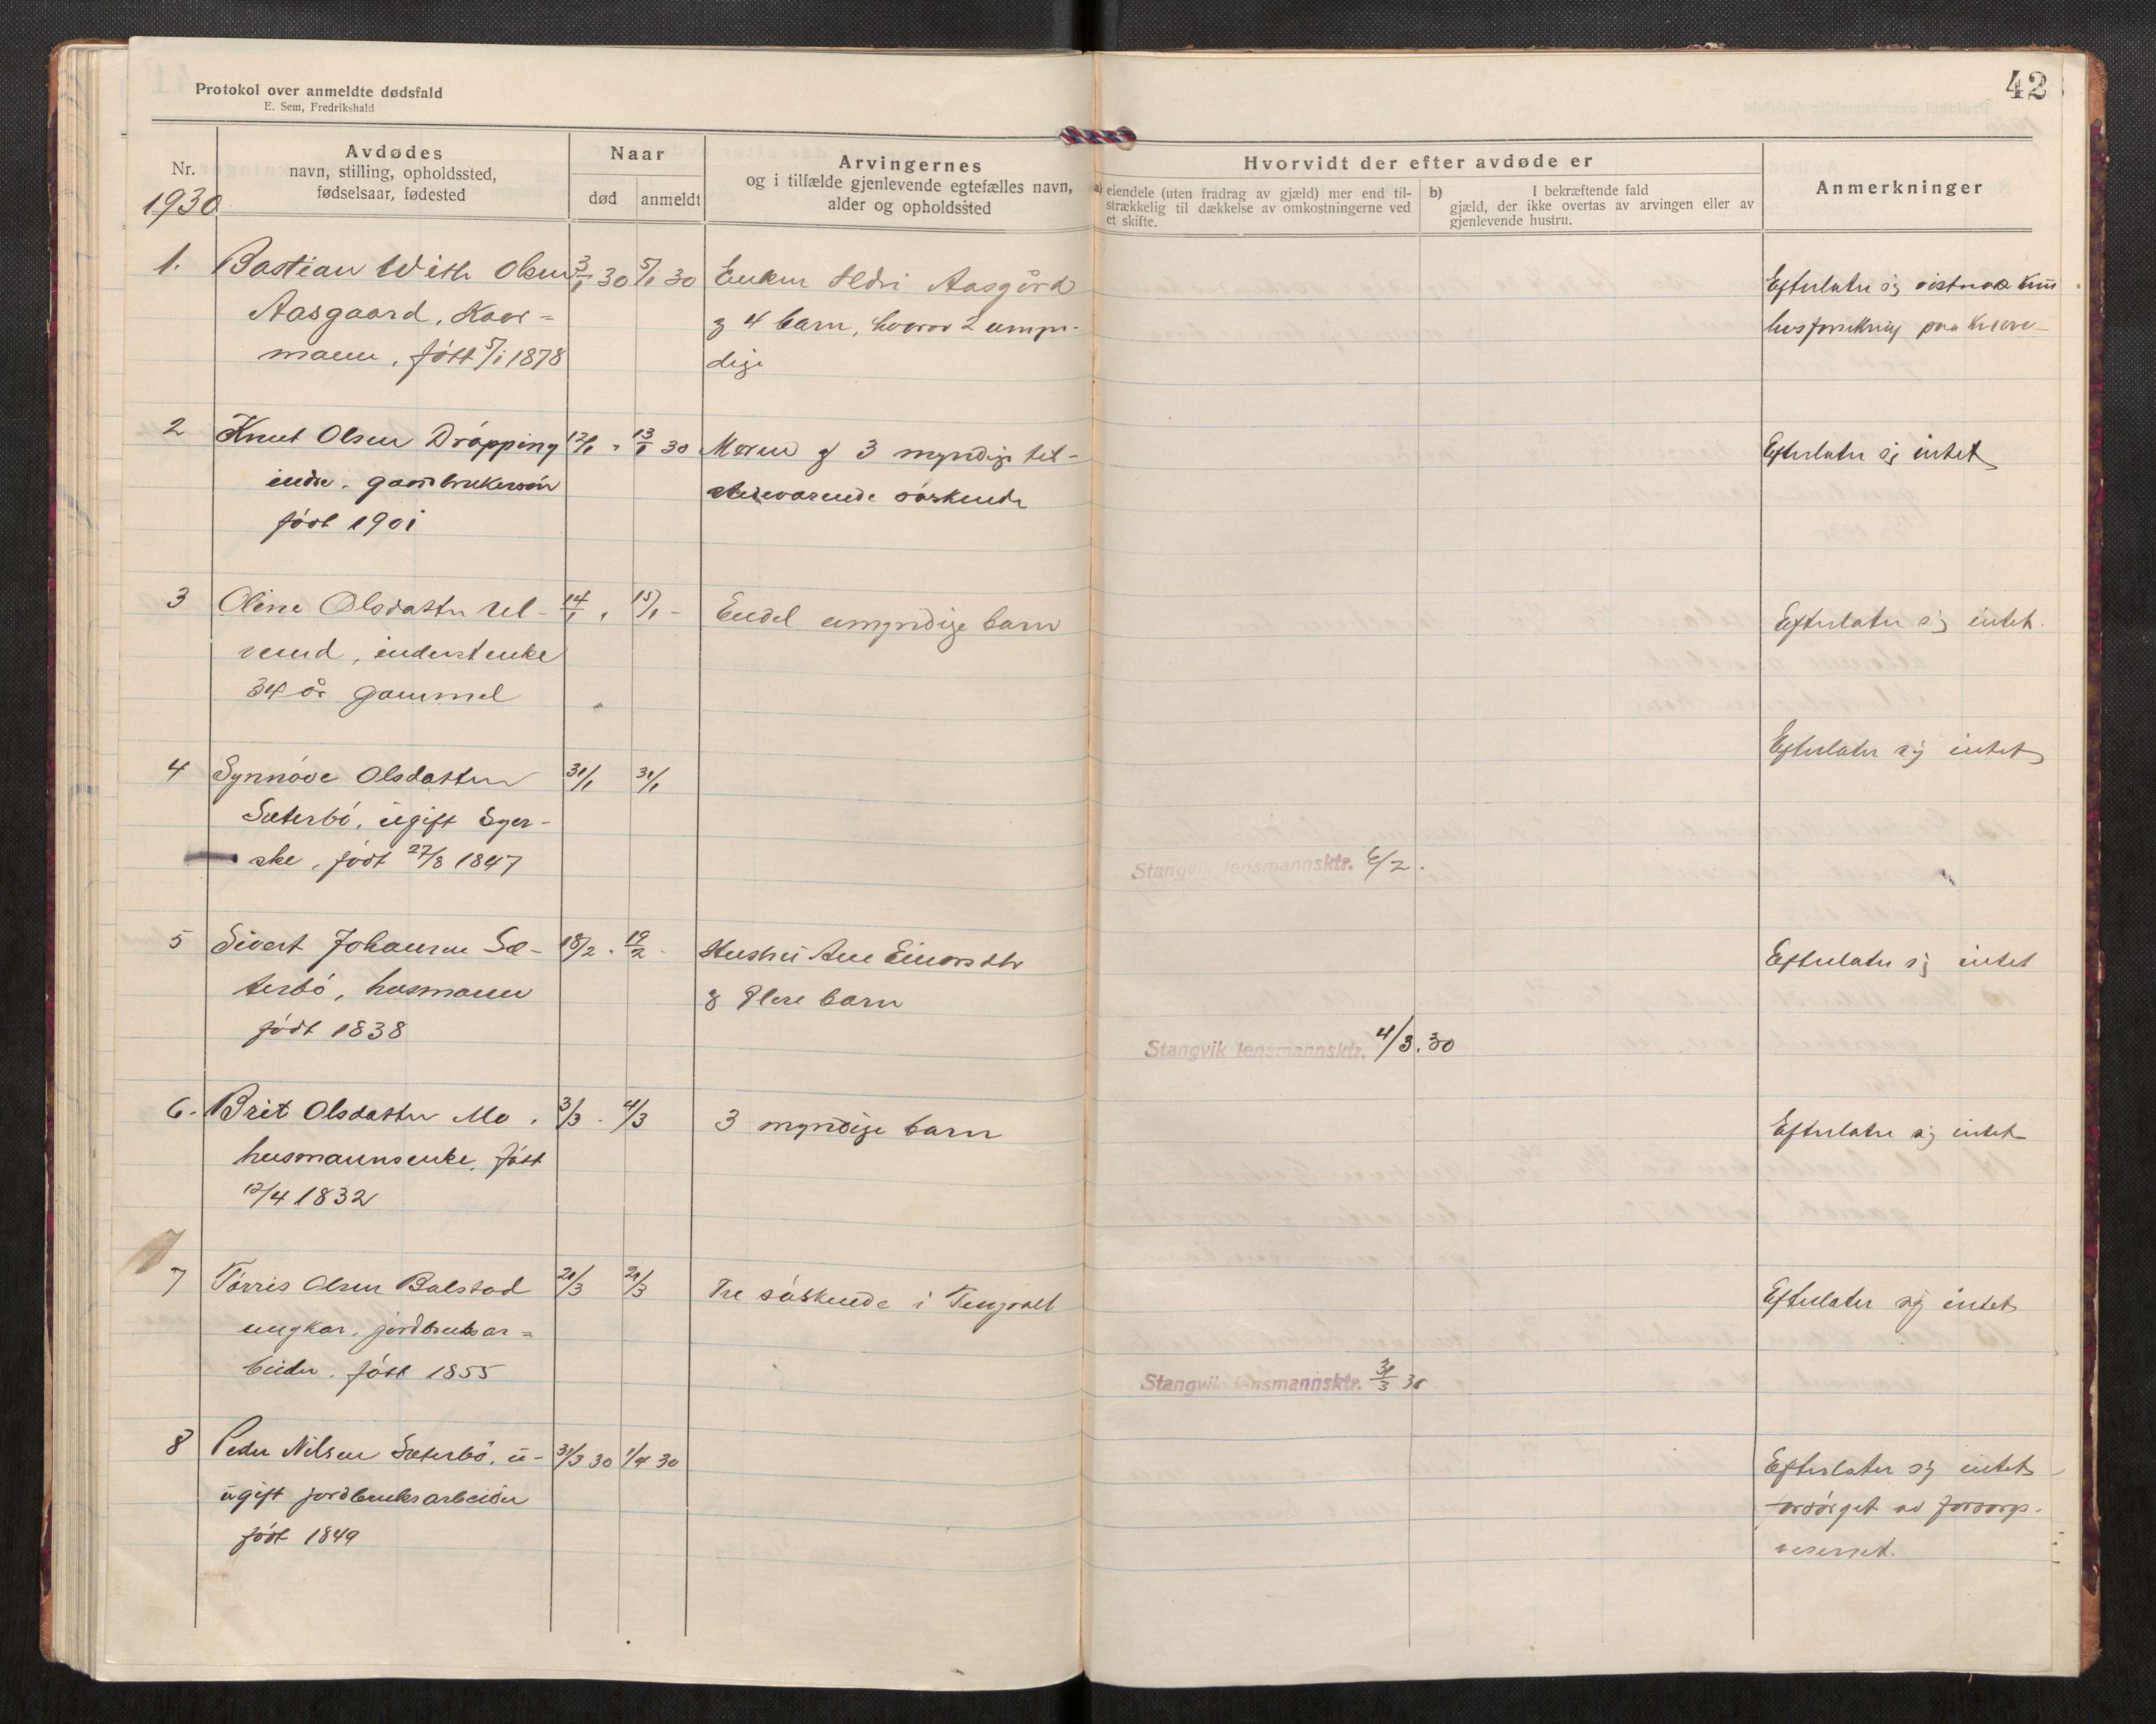 42
Protokol over anmeldte dødsfald
E. Sem, Fredrikshald
Nr.
1930
Avdødes
navn, stilling, opholdssted,
fødselsaar, fødested
Naar
død
anmeldt
Arvingernes
og i tilfælde gjenlevende egtefælles navn,
alder og opholdssted
Hvorvidt der efter avdøde er
a) eiendele (uten fradrag av gjæld) mer end til-
strækkelig til dækkelse av omkostningerne ved
et skifte.
b) I bekræftende fald
gjæld, der ikke overtas av arvingen eller av
gjenlevende hustru.
Anmerkninger
1. Bastian With Olsen 3/1 30 5/1 30 Enken Aasgård Efterlater sig kun
Aasgaard, Kaar= og 4 barn, hvorav 2 umyn- paa
mann, født 5/1 1878 dige
2 Knut Olsen Drøpping 12/1 " 13/1 30 Moren og 3 myndige til- Efterlater sig intet
indre. gaardbrukersøn stedeværende søskende
født 1901
3 Oline Olsdatter Ul- 14/1 " 15/1 - Endel umyndige barn Efterlater sig intet.
vund, inderstenke
34 år gammel
4 Synnøve Olsdatter 31/1 31/1 Efterlater sig intet
Sæterbø, ugift Syer-
ske, født 27/8 1847 Stangvik lensmannsktr. 6/2.
5 Sivert Johansen Sæ- 18/2. 19/2 - Hustru Ane Einarsdtr Efterlater sig intet
terbø, husmann og flere barn
født 1838 Stangvik lensmannsktr. 4/3.30
6. Brit Olsdatter Mo. 3/3. 4/3 3 myndige barn Efterlater sig intet
husmannsenke, født
12/4 1832
7 Tørris Olsen Balstad 21/3 21/3 Tre søskende i Tingvoll Efterlater sig intet
ungkar, jordbruksar=
beider. født 1855 Stangvik lensmannsktr. 31/3 30
8 Peder Nilsen Sæterbø, u- 31/3 30 1/4 30 Efterlater sig intet
ugift jordbruksarbeider forsørget av forsorgs-
født 1849 vesenet.